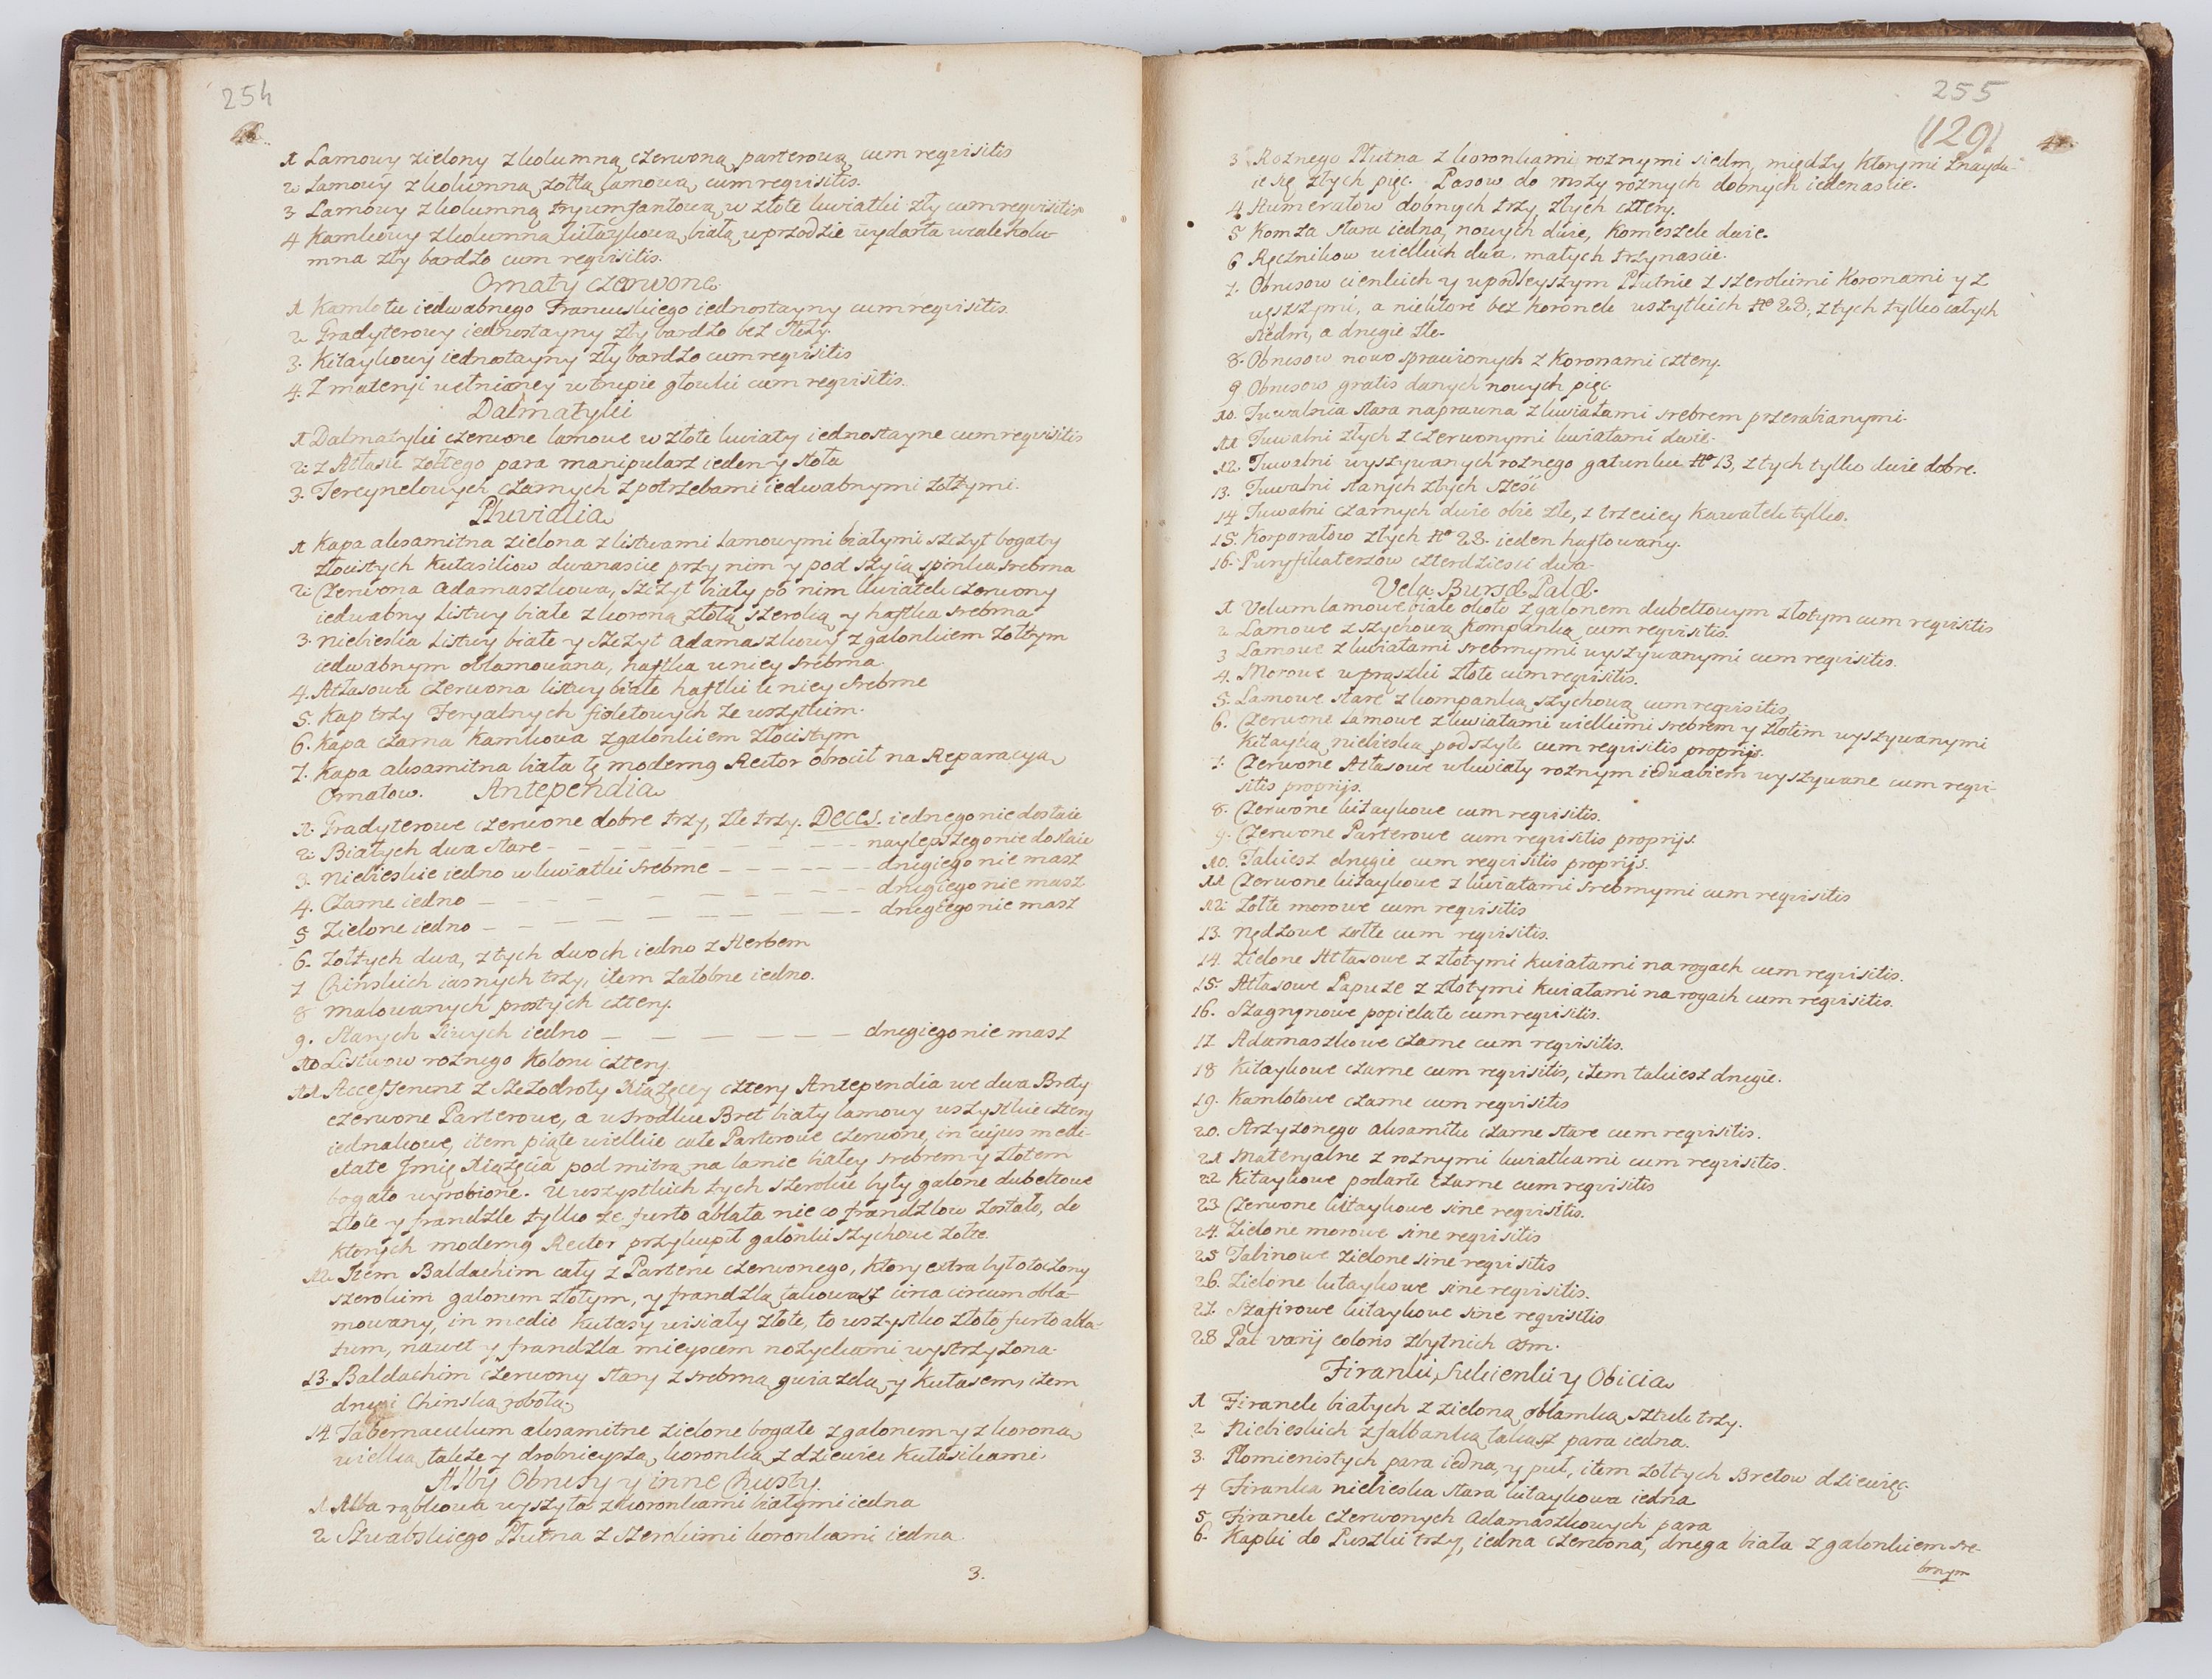 254
46.
1 Lamowy zielony z kolumną czerwoną parterową cum reqvisitis
2 Lamowy z kolumną zołtą lamową cum reqvisitis.
3 Lamowy z kolumną tryumfantową w złote kwiatki zły cum reqvisitis
4 Kamkowy z kolumną kitaykową białą w przodzie wydarta wcale kolu-
mna zły bardzo cum reqvisitis.
Ornaty czerwone.
1 Kamlotu iedwabnego Francuskiego iednostayny cum reqvisitis.
2 Gradyterowy iednostayny zły bardzo bez stuły.
3. Kitaykowy iednostayny zły bardzo cum reqvisitis
4. Z materyi wełnianey w trupie głowki cum reqvisitis.
Dalmatyki
1 Dalmatyki czerwone lamowe w złote kwiaty iednostayne cum reqvisitis
2. z Atłasu zołtego para manipularz ieden y stoła
3. Tercynelowych czarnych z potrzebami iedwabnymi zołtymi.
Pluvialia
1 Kapa aksamitna zielona z listwami lamowymi białymi szczyt bogaty
złocistych kutasikow dwanascie przy nim y pod szyią spinka srebrna
2. Czerwona adamaszkowa, szczyt biały po nim kwiatek czerwony
iedwabny listwy białe z koroną złotą szeroką y haftka srebrna
3. Niebieska listwy białe y szczyt adamaszkowy z galonkiem zołtym
iedwabnym oblamowana, haftka u niey srebrna.
4. Atłasowa czerwona listwy białe haftki u niey srebrne
5. Kap trzy Feryalnych fioletowych ze wszytkim.
6. Kapa czarna Kamkowa z galonkiem złocistym
7. Kapa aksamitna biała tę modernq Rector obrocił na Reparacyą
Ornatow. Antependia
1. Gradyterowe czerwone dobre trzy, złe trzy. Deces. iednego nie dostaie
2. Białych dwa stare - - - - - - - - - naylepszego nie dostaie
3. Niebieskie iedno w kwiatki srebrne - - - - - - drugiego nie masz
4. Czarne iedno - - - - - - - - drugiego nie masz
5 Zielone iedno - - - - - - - - drugiego nie masz
6. Zołtych dwa, z tych dwoch iedno z Herbem
7 Chinskich iasnych trzy, item załobne iedno.
8 Malowanych prostych cztery.
9. Starych siwych iedno - - - - - - drugiego nie masz
10 Listwow roznego koloru cztery.
11 Accesserunt z Szczodroty Xiążęcey cztery Antependia we dwa Brety
czerwone Parterowe, a w srodku Bret biały lamowy wszystkie cztery
iednakowe, item piąte wielkie całe Parterowe czerwone, in cujus medi-
etate Jmię Xiążęcia pod mitrą na lamie białey srebrem y złotem
bogato wyrobione. U wszystkich tych szerokie były galone dubeltowe
złote y frandzle tylko że furto ablata nie co frandzlow zostało, do
ktorych modernq Rector przykupił galonki szychowe zołte.
12 Item Baldachim cały z Parteru czerwonego, ktory extra był otoczony
szerokim galonem złotym, y frandzlą takowąsz circa circum obla-
mowany, in medio kutasy wisiały złote, to wszystko złoto furto abla-
tum, nawet y frandzla mieyscem nozyckami wystrzyzona.
13. Baldachim czerwony stary z srebrną gwiazdą y kutasem, item
drugi Chinską robotą.
14 Tabernaculum aksamitne zielone bogate z galonem y z koroną
wielką, także y drobnieyszą koronką z dziewieć kutasikami.
Alby Obrusy y inne Chusty.
1 Alba rąbkowa wyszyta z koronkami białymi iedna
2 Szwabskiego Płutna z szerokimi koronkami iedna
3.
255
(129)
47.
3 Roznego Płutna z koronkami roznymi siedm, między ktorymi znaydu-
ie się złych pięc. Pasow do mszy roznych dobnych iedenascie.
4 Humerałow dobnych trzy złych cztery.
5 Komza stara iedna, nowych dwie, komeszek dwie.
6 Ręcznikow wielkich dwa, małych trzynascie.
7. Obrusow cienkich y w podleyszym Płutnie z szerokimi Koronami y z
węszszymi, a niektore bez koronek wszytkich No 28, z tych tylko całych
siedm, a drugie złe.
8. Obrusow nowo sprawionych z Koronami cztery.
9 Obrusow gratis danych nowych pięc.
10. Tuwalnia stara naprawna z kwiatami srebrem przerabianymi.
11 Tuwalni złych z czerwonymi kwiatami dwie.
12. Tuwalni wyszywanych roznego gatunku No 13, z tych tylko dwie dobre.
13. Tuwalni starych złych sześć
14 Tuwalni czarnych dwie obie złe, z trzeciey kawałek tylko.
15. Korporałow złych No 28. ieden haftowany.
16. Puryfikaterzow czterdziesci dwa.
Vela Bursæ Palæ.
1 Velum lamowe białe około z galonem dubeltowym złotym cum reqvisitis
2 Lamowe z szychową kompanką cum reqvisitis.
3 Lamowe z kwiatami srebrnymi wyszywanymi cum reqvisitis.
4. Morowe w prązki złote cum reqvisitis.
5. Lamowe stare z kompanką szychową cum reqvisitis
6. Czerwone lamowe z kwiatami wielkimi srebrem y złotem wyszywanymi
kitayką niebieską podszyte cum reqvisitis proprijs.
7. Czerwone Atłasowe w kwiaty roznym iedwabiem wyszywane cum reqvi-
sitis proprijs.
8. Czerwone kitaykowe cum reqvisitis.
9. Czerwone Parterowe cum reqvisitis proprijs.
10. Takiesz drugie cum reqvisitis proprijs.
11 Czerwone kitaykowe z kwiatami srebrnymi cum reqvisitis
12 Zołte morowe cum reqvisitis
13. Nędzowe zołte cum reqvisitis.
14. Zielone Atłasowe z złotymi kwiatami na rogach cum reqvisitis.
15. Atłasowe Papuze z złotymi kwiatami na rogach cum reqvisitis.
16. Szagrynowe popielate cum reqvisitis.
17 Adamaszkowe czarne cum reqvisitis.
18 Kitaykowe czarne cum reqvisitis, item takiesz drugie.
19. Kamlotowe czarne cum reqvisitis
20. Strzyzonego aksamitu czarne stare cum reqvisitis.
21 Materyalne z roznymi kwiatkami cum reqvisitis.
22 Kitaykowe podarte czarne cum reqvisitis
23 Czerwone kitaykowe sine reqvisitis.
24. Zielone morowe sine reqvisitis
25 Tabinowe zielone sine reqvisitis
26. Zielone kitaykowe sine reqvisitis.
27. Szafirowe kitaykowe sine reqvisitis
28 Pal varij coloris zbytnich osm.
Firanki, Sukienki y Obicia
1 Firanek białych z zieloną oblamką sztuk trzy.
2 Niebieskich z falbanką takasz para iedna.
3. Płomienistych para iedna, y puł, item zołtych Bretow dziewięć
4 Firanka niebieska stara kitaykowa iedna
5. Firanek czerwonych adamaszkowych para
6. Kapki do Puszki trzy, iedna czerwona, druga biała z galonkiem sre-
brnym